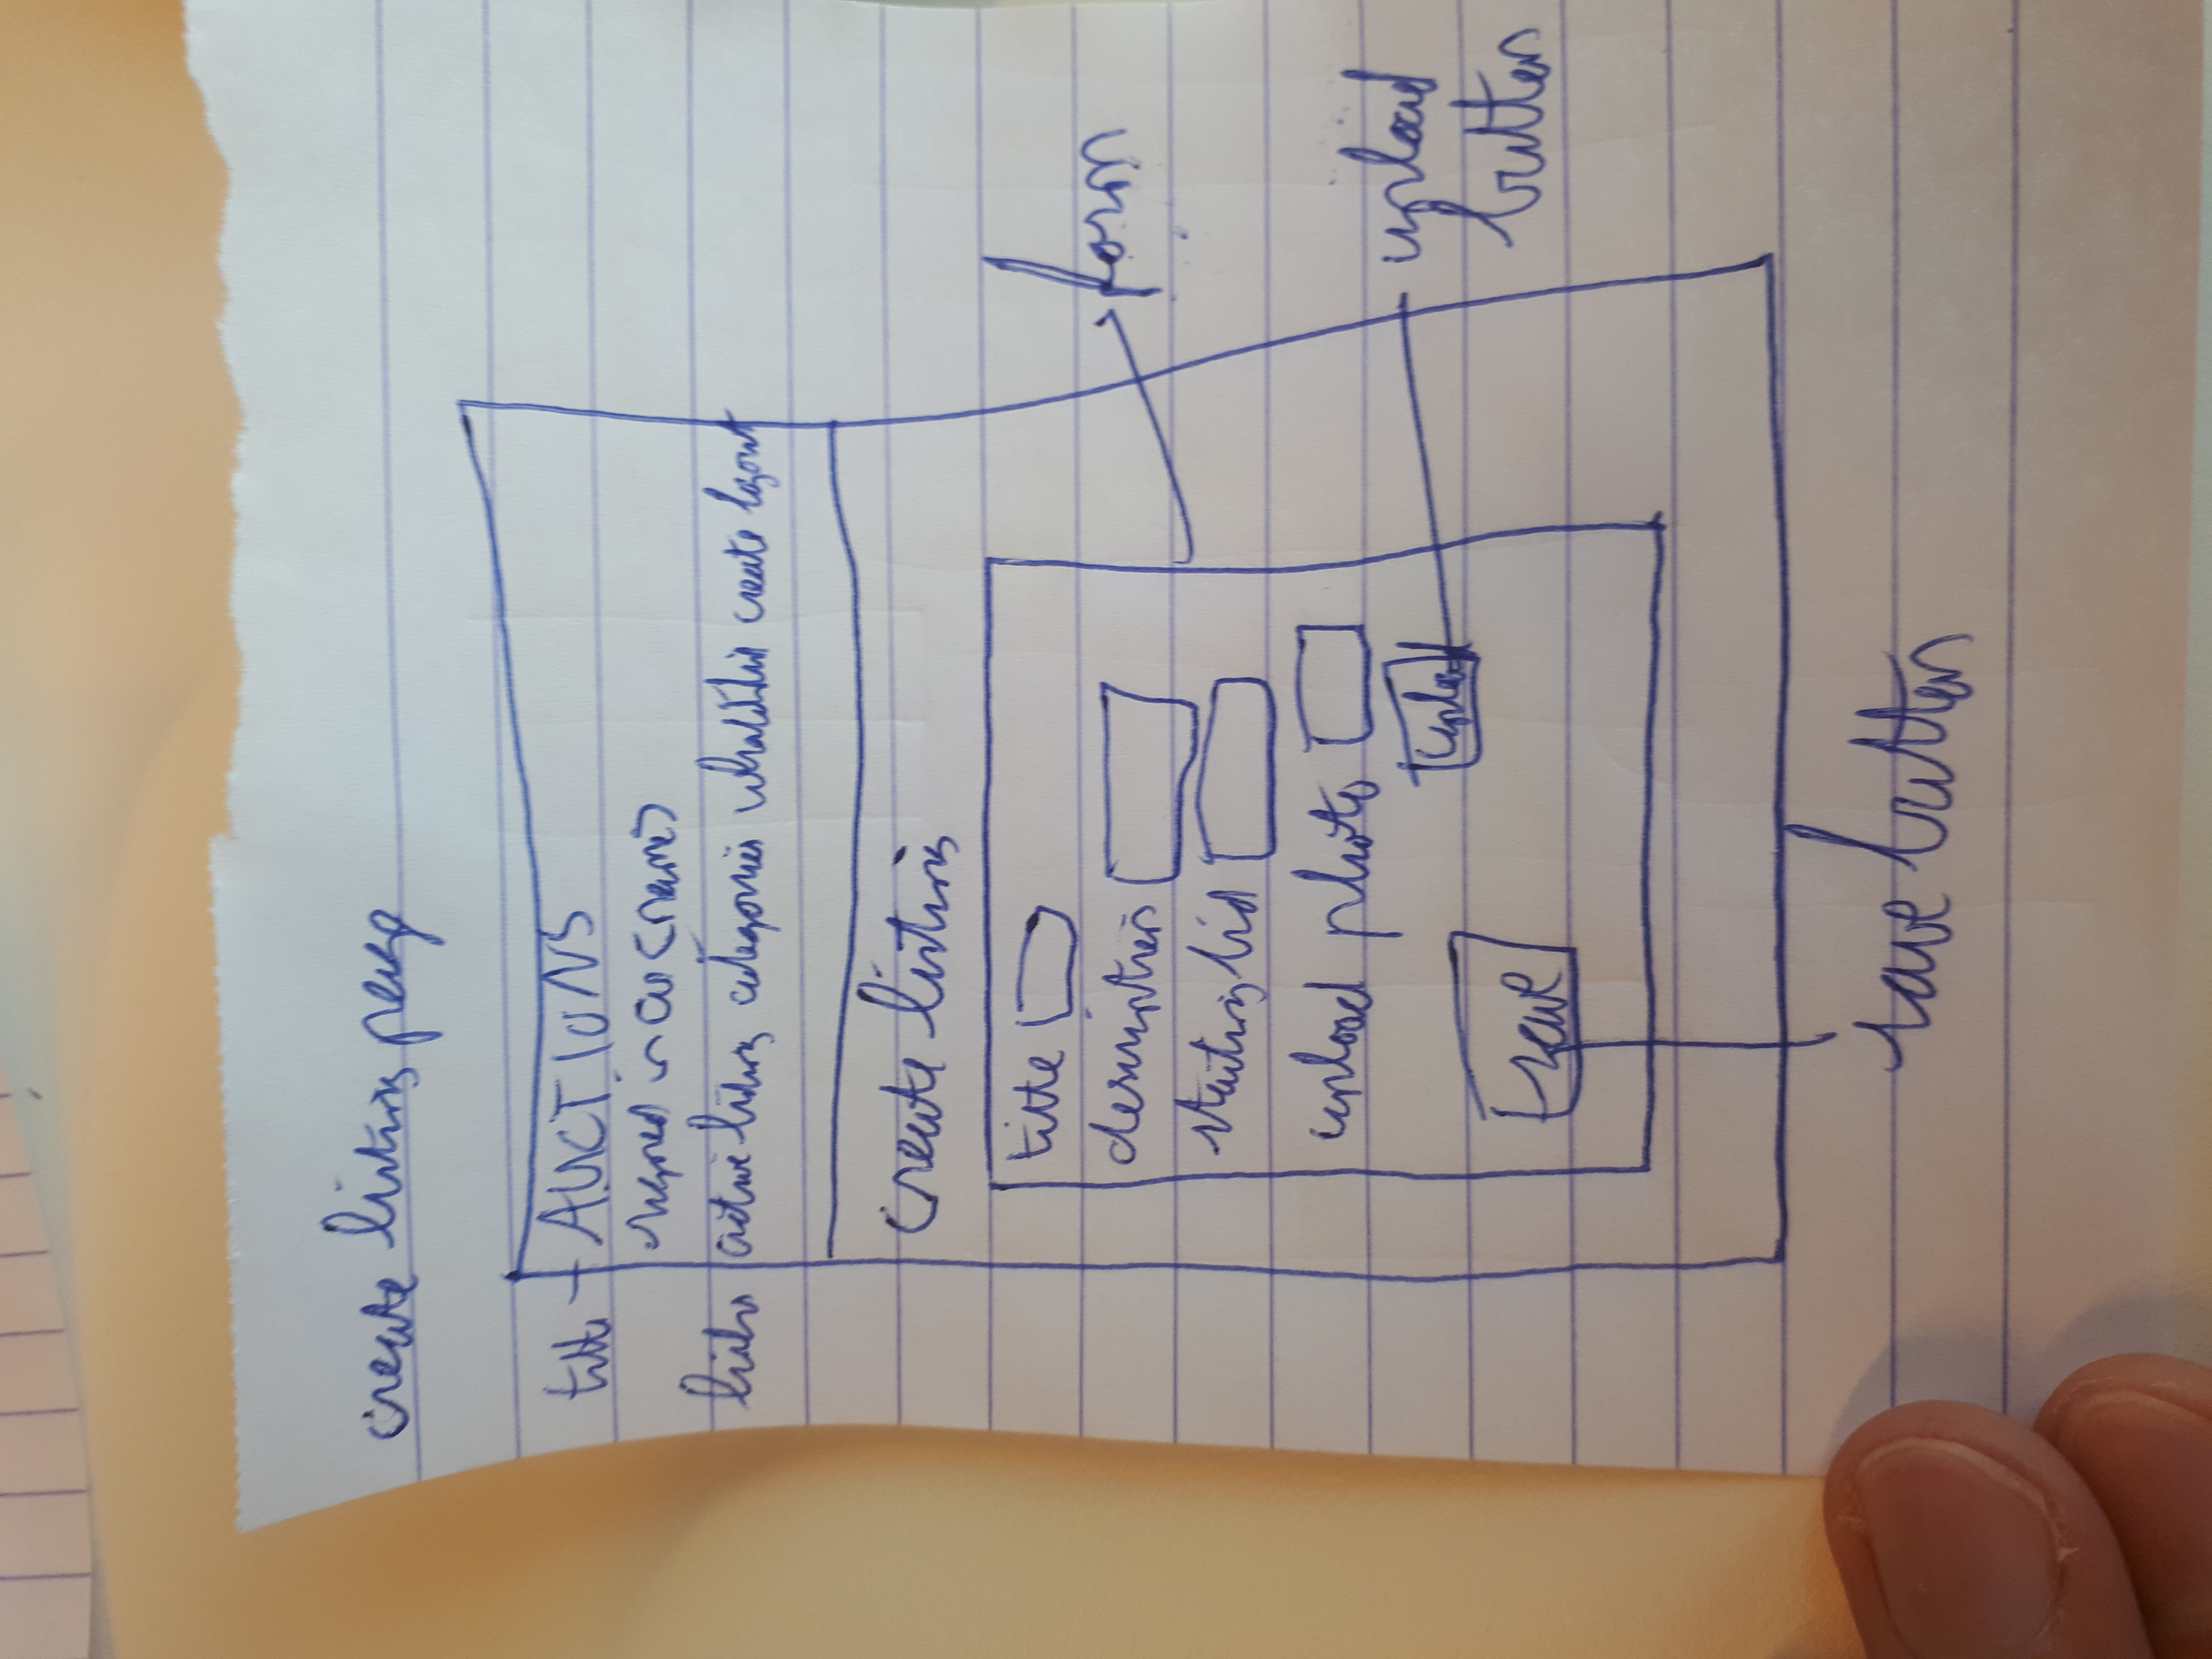 create listing page
title AUCTIONS
signed in as (name)
links active listing categories watchlist create logout
create listing
title
description
form
starting bid
upload photo
upload
upload
button
save
save button